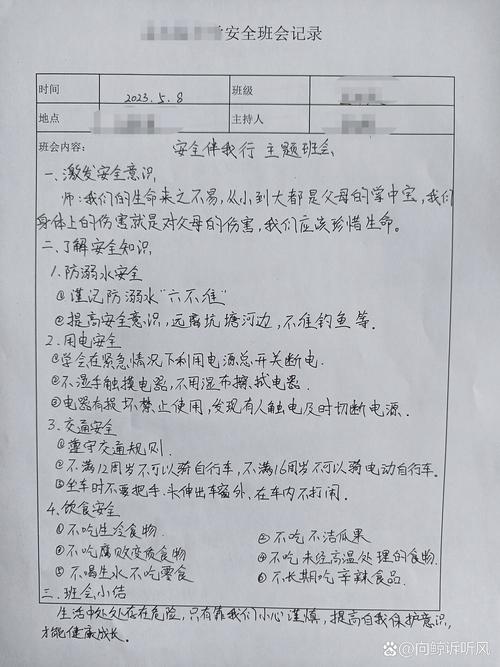 安全班会记录
时间 2023.5.8 班级
地点 主持人
班会内容: 安全伴我行 主题班会
一、激发安全意识
师:我们的生命来之不易,从小到大都是父母的掌中宝,我们
身体上的伤害就是对父母的伤害,我们应该珍惜生命。
二、了解安全知识
1.防溺水安全
①谨记防溺水“六不准”
②提高安全意识,远离坑塘河边,不准钓鱼等.
2.用电安全
①学会在紧急情况下利用电源总开关断电.
②不湿手触摸电器,不用湿布擦拭电器.
③电器有损坏禁止使用,发现有人触电及时切断电源.
3.交通安全
①遵守交通规则.
②不满12周岁不可以骑自行车,不满16周岁不可以骑电动自行车.
③坐车时不要把手、头伸出车窗外,在车内不打闹.
4.饮食安全
①不吃生冷食物. ②不吃不洁瓜果
③不吃腐败变质食物 ④不吃未经高温处理的食物.
⑤不喝生水不吃零食 ⑥不长期吃辛辣食品.
三、班会小结
生活中处处存在危险,只有靠我们小心谨慎,提高自我保护意识,
才能健康成长.
@向鲸诉听风